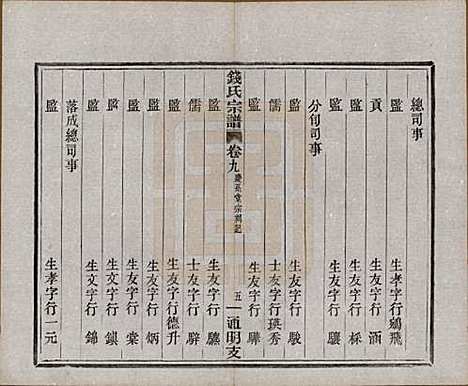 總司事
監 生孝字行鵷飛
貢 生友字行涵
監 生友字行棌
監 生友字行驤
分旬司事
監 生友字行駿
儒 士友字行瑛秀
監 生友字行驊
錢氏宗譜 卷九 慶系堂宗祠記 五 通明支
監 生友字行驥
儒 士友字行騂
監 生友字行德升
監 生友字行炳
監 生友字行棠
監 生文字行鎮
監 生文字行錦
落成總司事
監 生孝字行一元